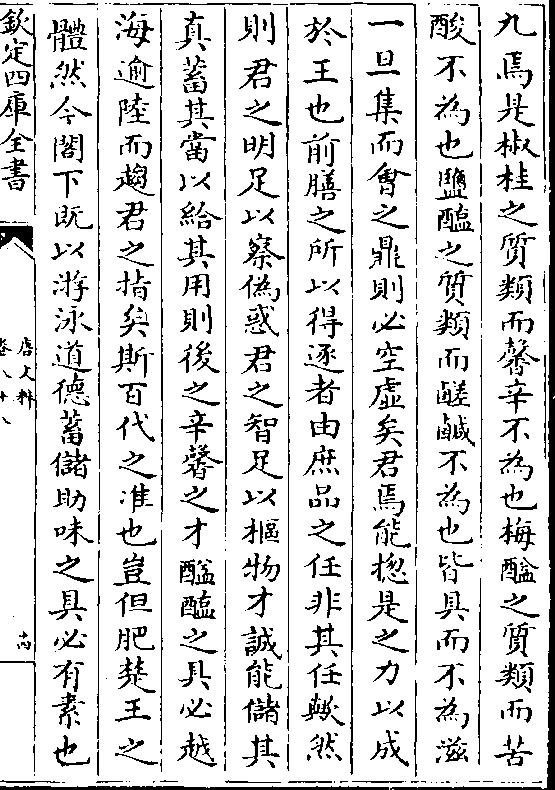 九焉是椒桂之質類而馨辛不為也梅醯之質類而苦
酸不為也鹽醢之質類而醝鹹不為也皆具而不為滋
一旦集而會之鼎則必空虛矣君焉能揔是之力以成
於王也前膳之所以得逐者由庶品之任非其任歟然
則君之明足以察偽惑君之智足以樞物才誠能儲其
真蓄其當以給其用則後之辛馨之才醯醢之具必越
海逾陸而趨君之指矣斯百代之准也豈但肥楚王之
體然今閤下既以游泳道德蓄儲助味之具必有素也
欽定四庫全書
唐文粹
卷八十八